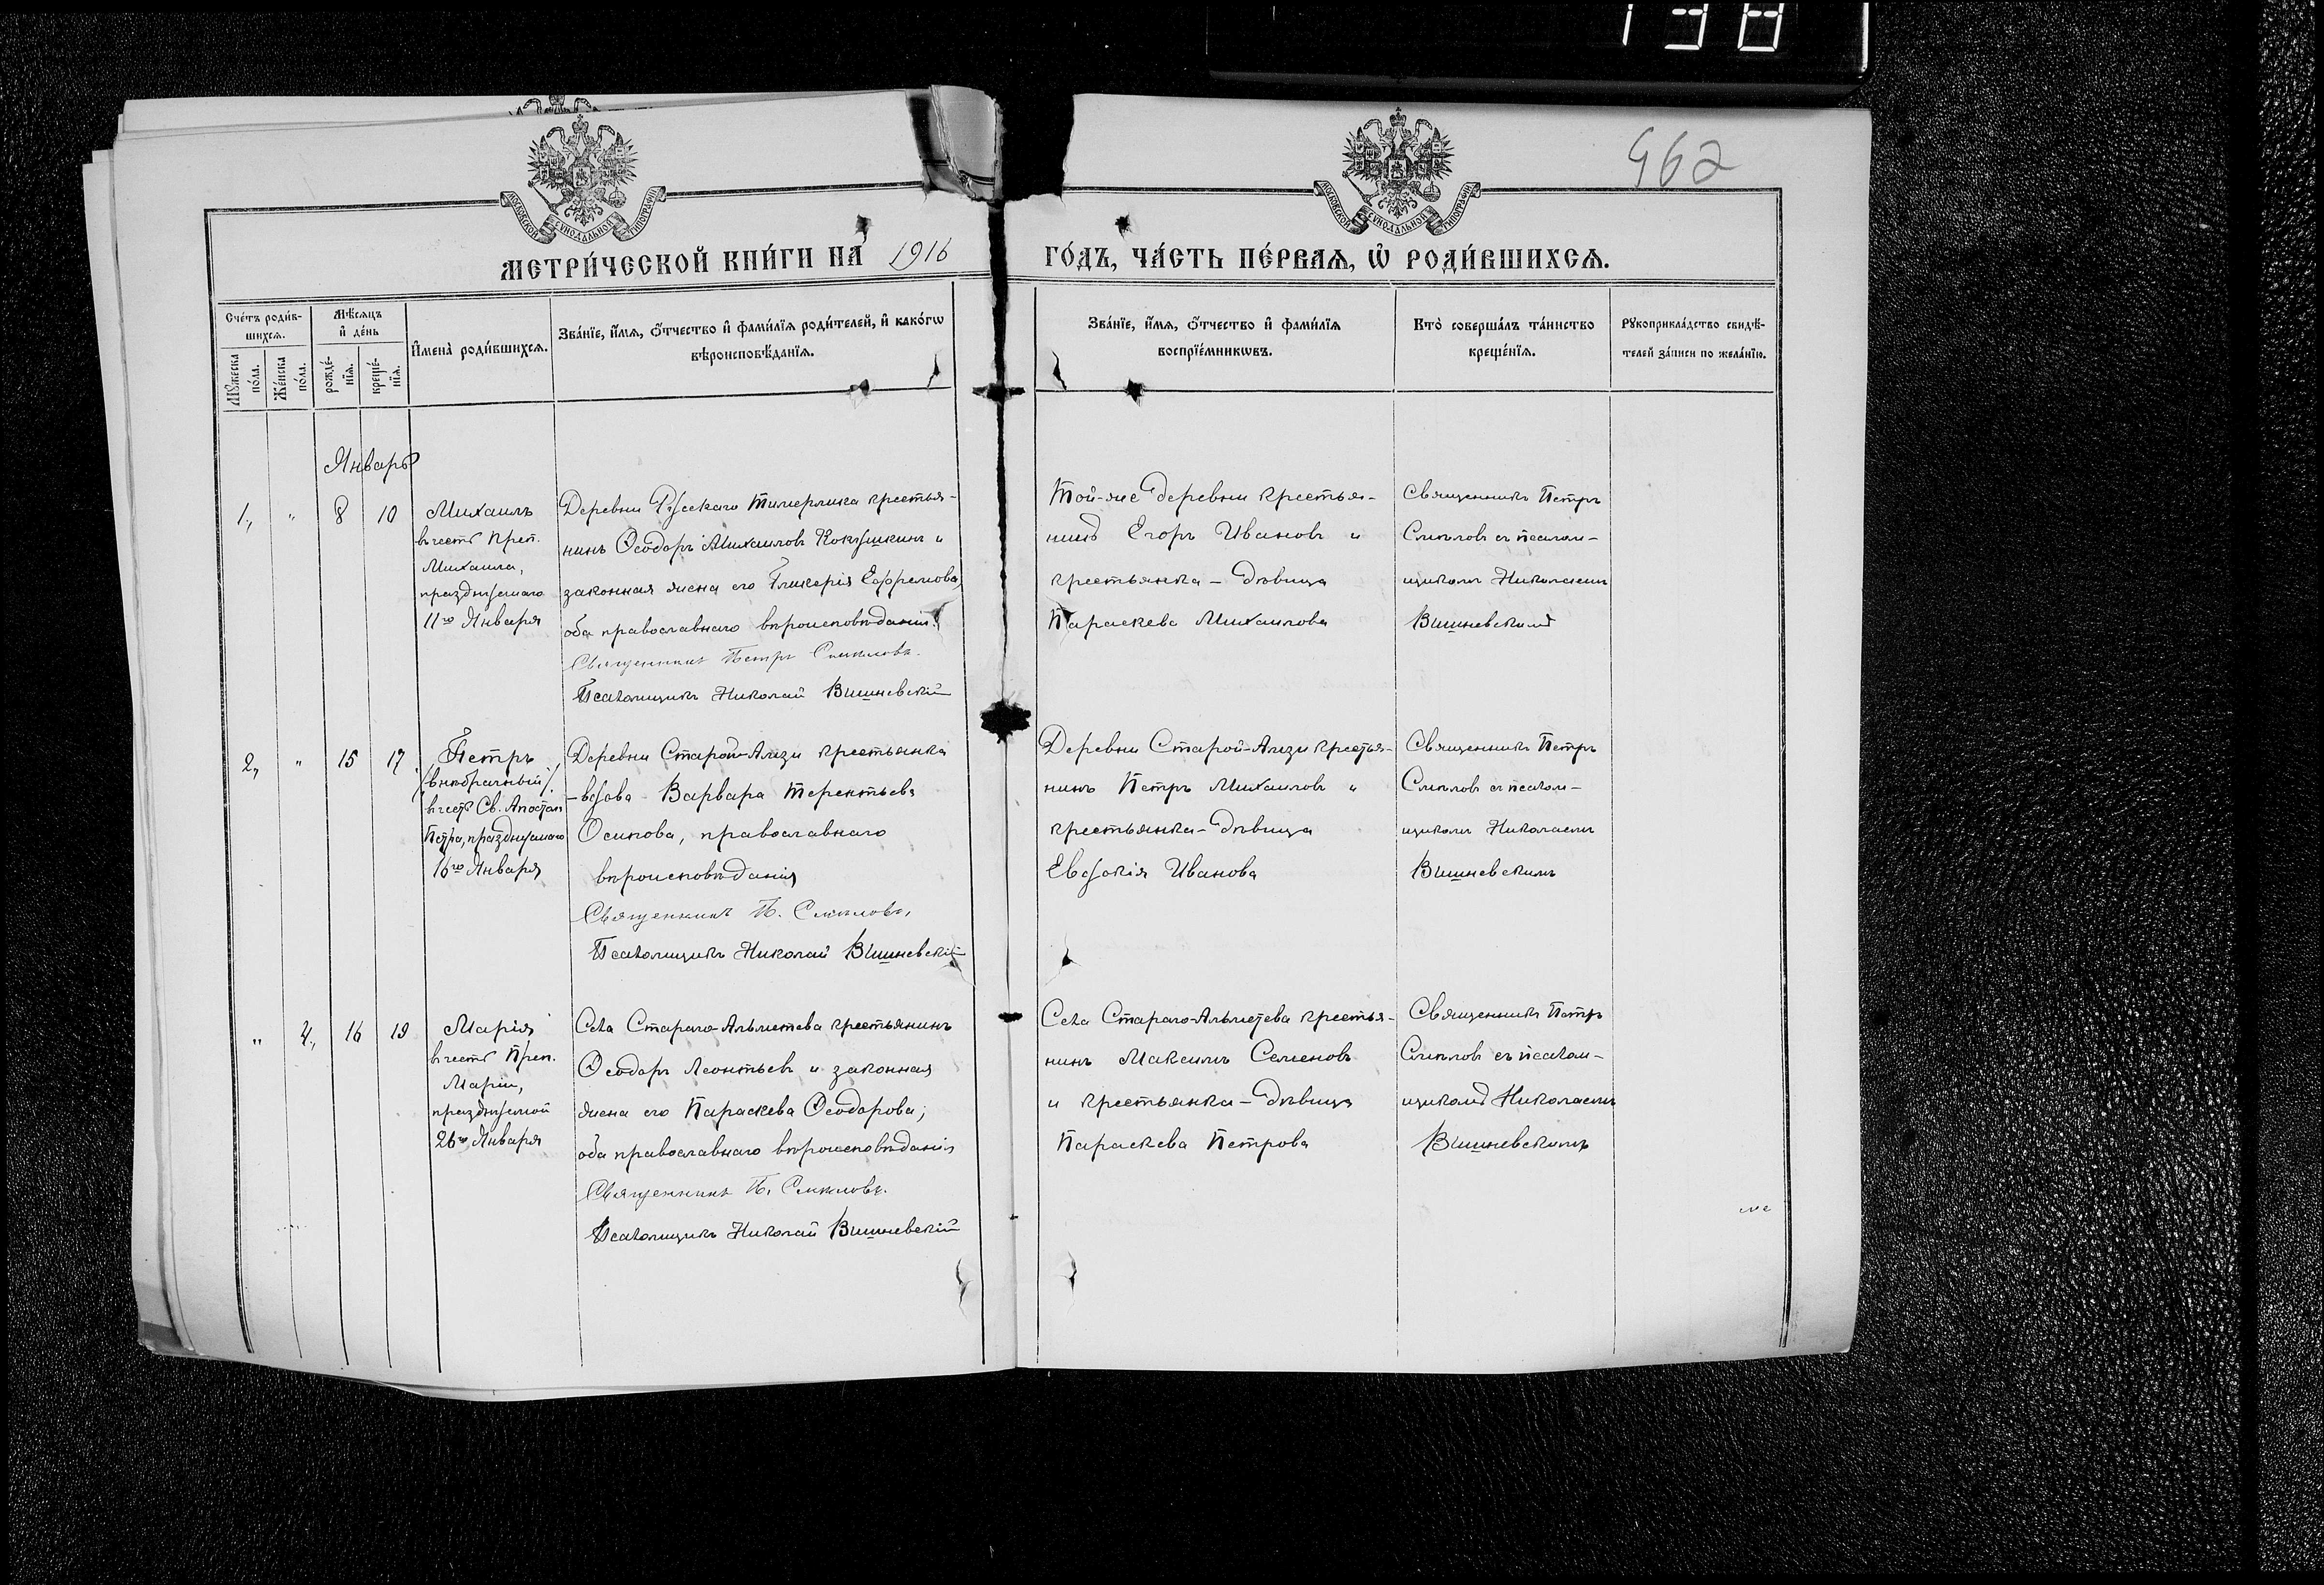 138
962
МОСКОВСКОЙ СѴНОДАЛЬНОЙ ТИПОГРАФІИ
МОСКОВСКОЙ СѴНОДАЛЬНОЙ ТИПОГРАФІИ
МЕТРИ́ЧЕСКОЙ КНИ́ГИ НА 1916
ГО́ДЪ, ЧА́СТЬ ПЕ́РВАѦ, Ѡ҆ РОДИ́ВШИХСѦ.
Сче́тъ роди́в-
шихсѧ.
Мѣ́сѧцъ
и҆ де́нь
Мꙋ́жеска
по́ла.
Же́нска
по́ла.
рожде́-
нїѧ.
креще́-
нїѧ.
И҆мена̀ роди́вшихсѧ.
Зва́нїе, и҆́мѧ, ѻ҆́тчество и҆ фами́лїѧ роди́телей, и҆ како́гѡ
вѣроисповѣ́данїѧ.
Зва́нїе, и҆́мѧ, ѻ҆́тчество и҆ фами́лїѧ
воспрїе́мникѡвъ.
Кто̀ соверша́лъ та́инство
креще́нїѧ.
Рꙋкоприкла́дство свидѣ́-
телей за́писи по жела́нїю.
Январь
1., " 8 10
Михаилъ
въ честь Преп.
Михаила,
празднуемаго
11го Января
Деревни Русскаго Тимерлика крестья-
нинъ Ѳеодоръ Михаиловъ Кокушкинъ и
законная жена его Гликерія Ефремова,
оба православнаго вѣроисповѣданія.
Священникъ Петръ Смѣловъ.
Псаломщикъ Николай Вишневскій
Той-же деревни крестья-
нинъ Егоръ Ивановъ и
крестьянка-дѣвица
Параскева Михаилова
Священникъ Петръ
Смѣловъ съ псалом-
щикомъ Николаемъ
Вишневскимъ
2, " 15 17
Петръ
/внѣбрачный/
въ честь Св. Апостол
Петра, празднуемаго
16го Января
Деревни Старой-Амзи крестьянка
-вдова Варвара Терентьева
Осипова, православнаго
вѣроисповѣданія
Священникъ П. Смѣловъ,
Псаломщикъ Николай Вишневскій
Деревни Старой-Амзи крестья-
нинъ Петръ Михаиловъ и
крестьянка-дѣвица
Евдокія Иванова
Священникъ Петръ
Смѣловъ съ псалом-
щикомъ Николаемъ
Вишневскимъ
" 4., 16 19
Марія
въ честь Преп.
Маріи,
празднуемой
26го Января
Села Стараго-Альметева крестьянинъ
Ѳеодоръ Леонтьевъ и законная
жена его Параскева Ѳеодорова;
оба православнаго вѣроисповѣданія
Священникъ П. Смѣловъ.
Псаломщикъ Николай Вишневскій
Села Стараго-Альметева крестья-
нинъ Максимъ Семеновъ
и крестьянка-дѣвица
Параскева Петрова
Священникъ Петръ
Смѣловъ съ псалом-
щикомъ Николаемъ
Вишневскимъ